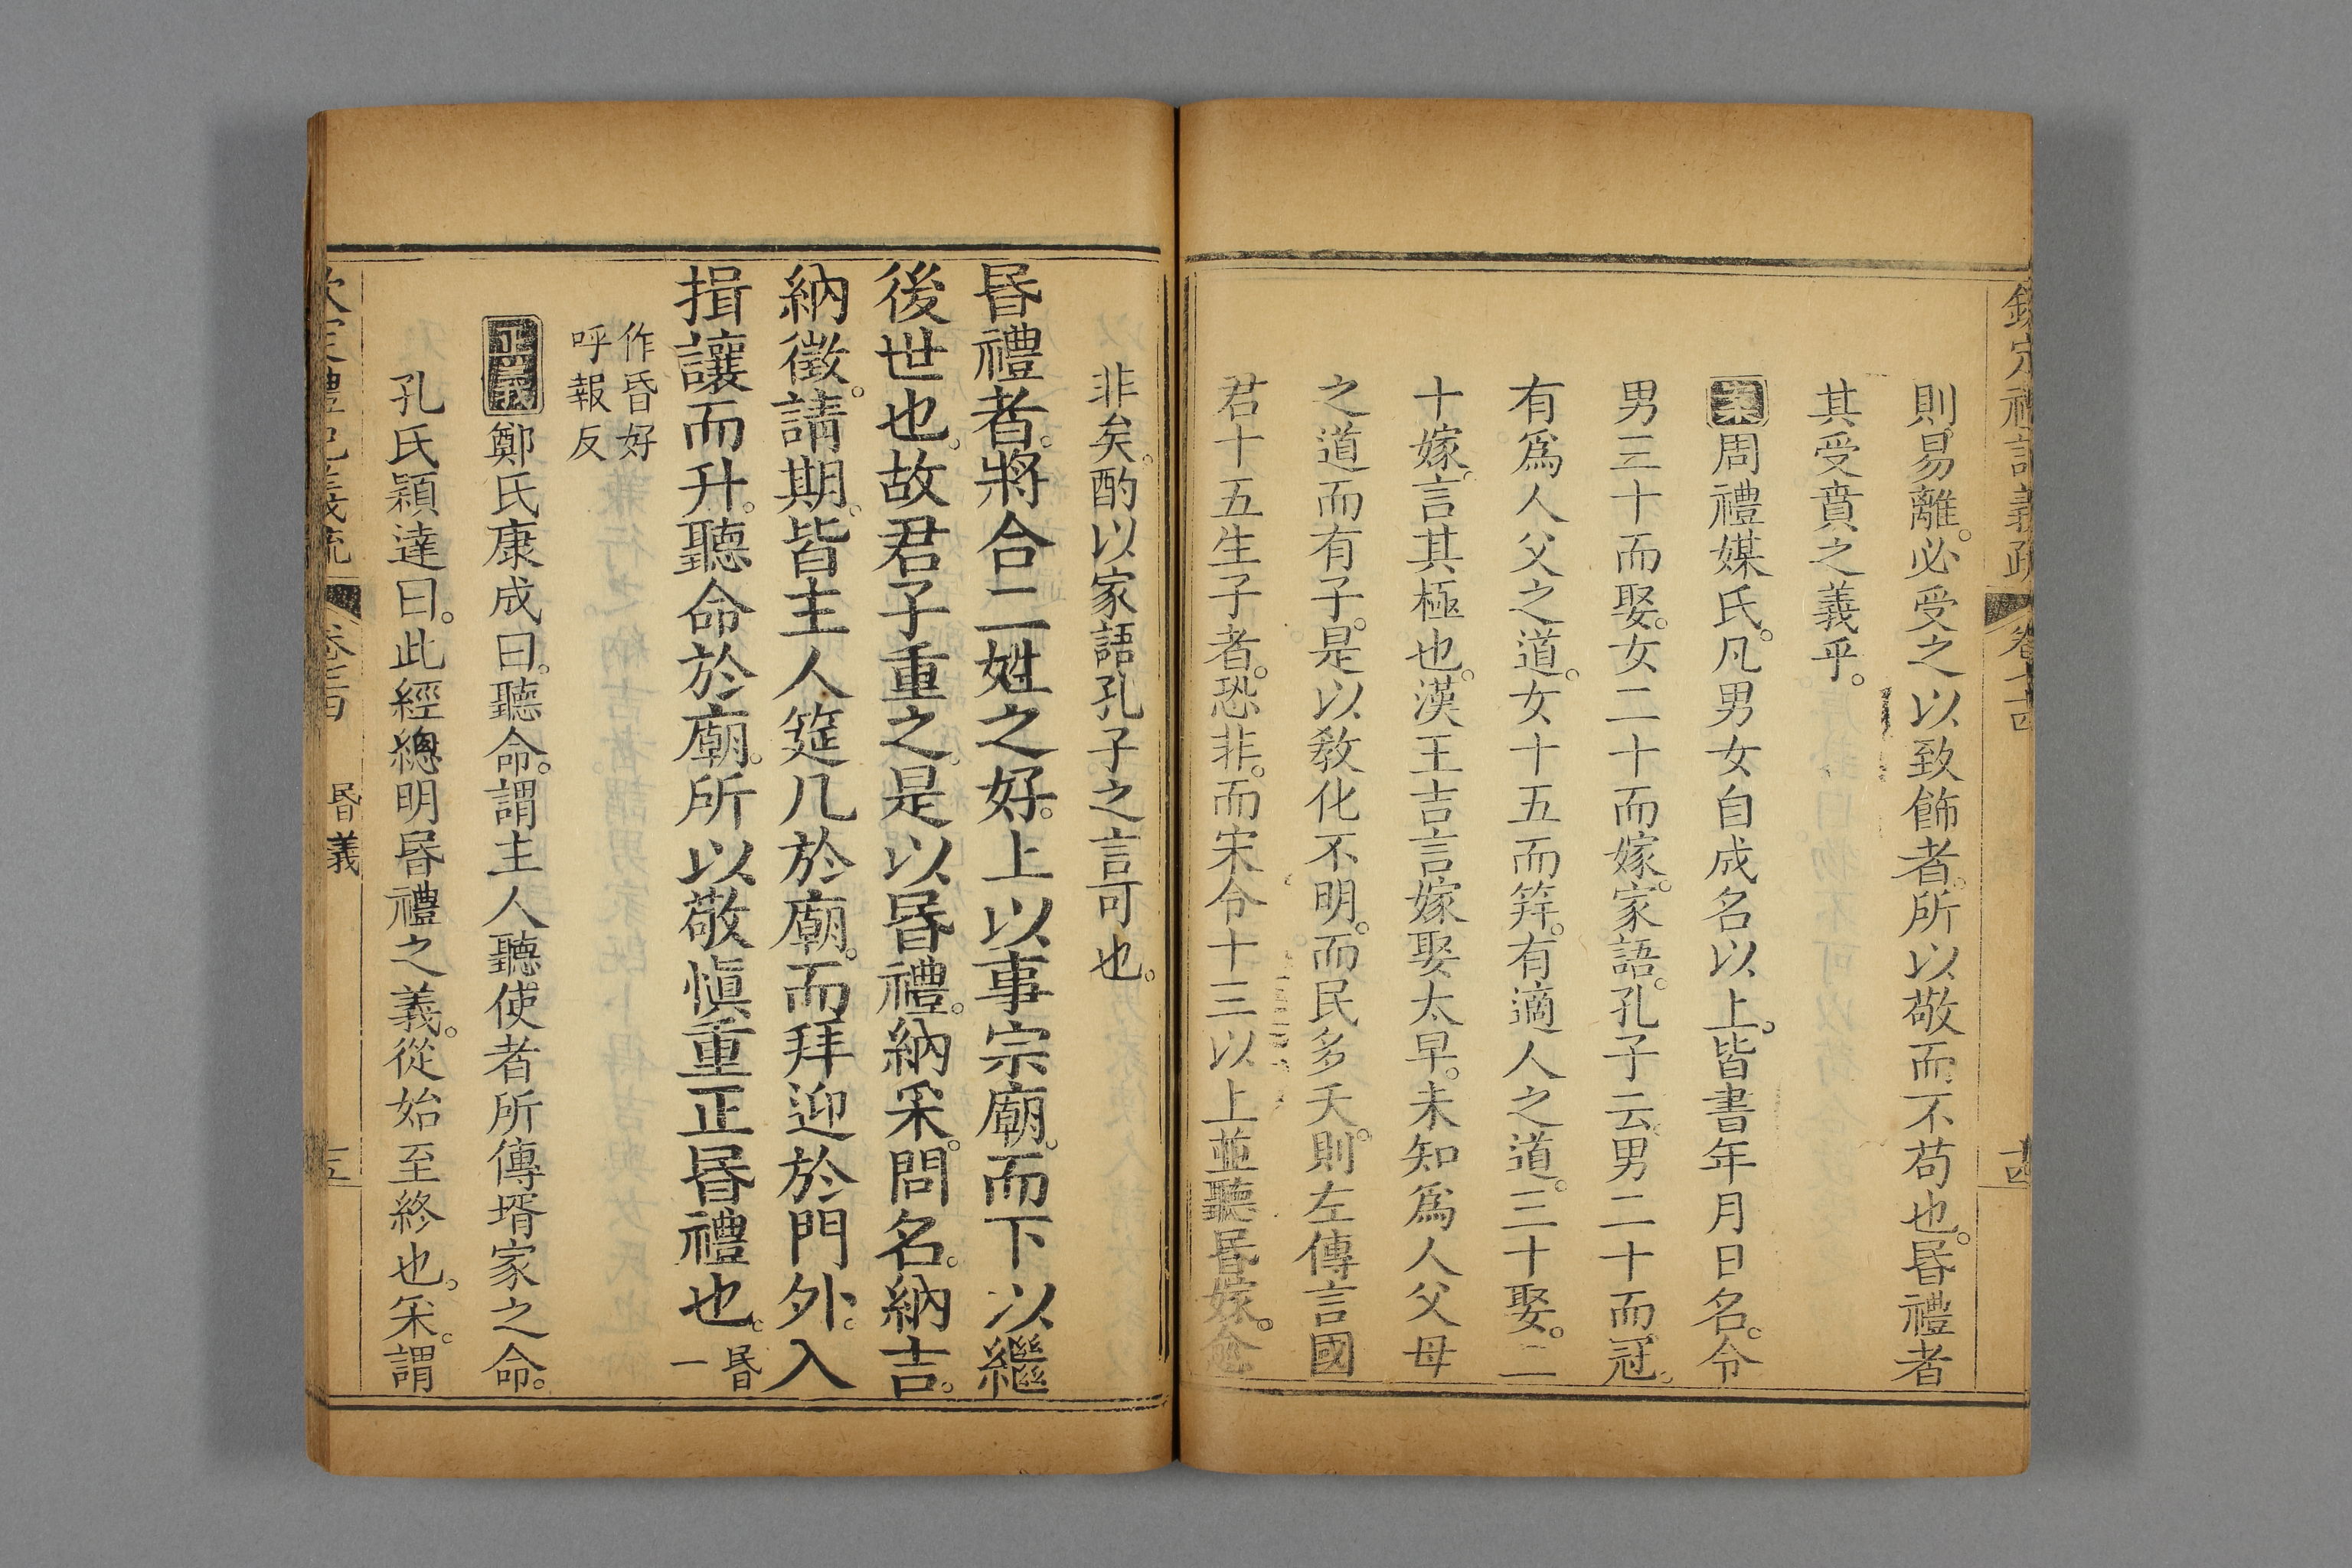 欽定禮記義疏 卷七十四 十四
則易離。必受之以致飾者。所以敬而不苟也。昏禮者
其受賁之義乎。
案周禮媒氏。凡男女自成名以上。皆書年月日名。令
男三十而娶。女二十而嫁。家語。孔子云。男二十而冠。
有爲人父之道。女十五而笄。有適人之道。三十娶。二
十嫁。言其極也。漢王吉言嫁娶太早。未知爲人父母
之道而有子。是以敎化不明。而民多夭。則左傳言國
君十五生子者。恐非。而宋令十三以上並聽昏嫁。愈
非矣。酌以家語孔子之言可也。
昏禮者。將合二姓之好。上以事宗廟。而下以繼
後世也。故君子重之。是以昏禮。納采。問名。納吉。
納徵。請期。皆主人筵几於廟。而拜迎於門外。入
揖讓而升。聽命於廟。所以敬愼重正昏禮也。昏一
作昏好
呼報反
正義鄭氏康成曰。聽命。謂主人聽。使者所傳壻家之命。
孔氏穎達曰。此經總明昏禮之義。從始至終也。采。謂
欽定禮記義疏 昏義